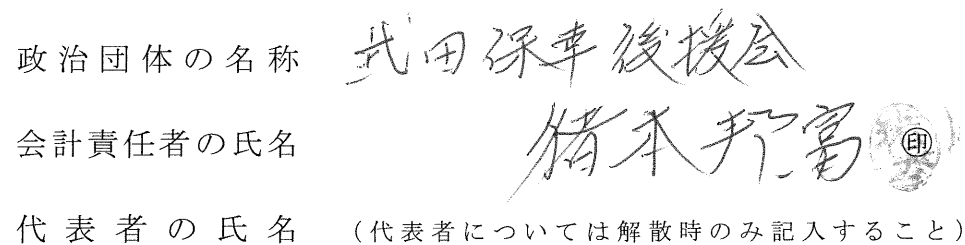 政治団体の名称 武田保幸後援会
会計責任者の氏名 猪本邦富 ㊞
代表者の氏名 (代表者については解散時のみ記入すること)